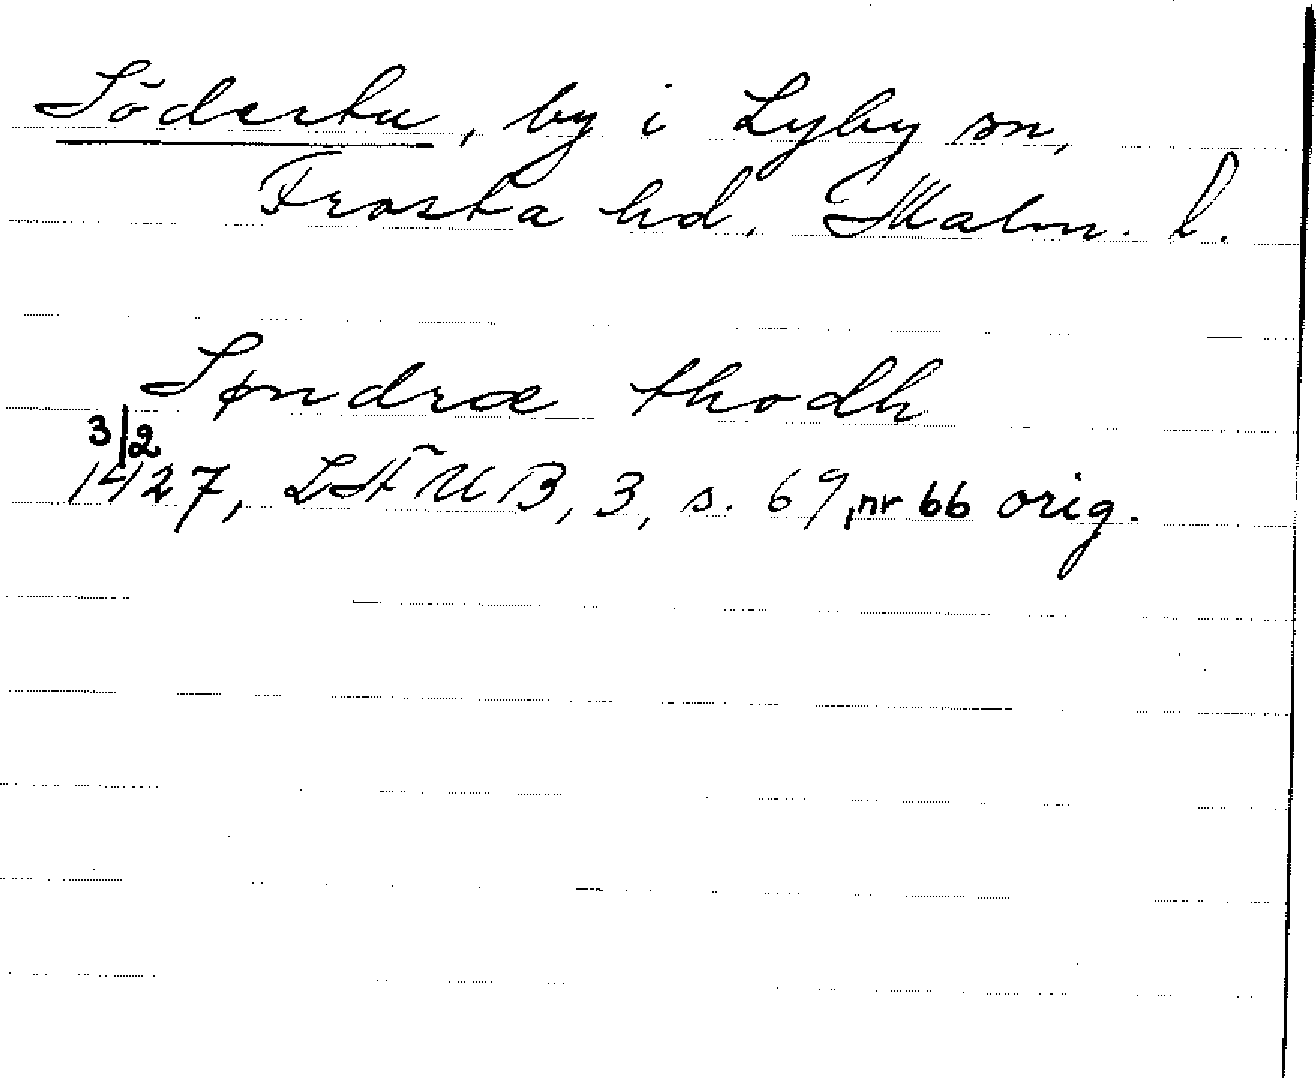 Södertu, by i Lyby sn,
Frosta hd. Malm. l.
Søndræ thodh
3/2
1427, LÄUB, 3, s. 69, nr 66 orig.